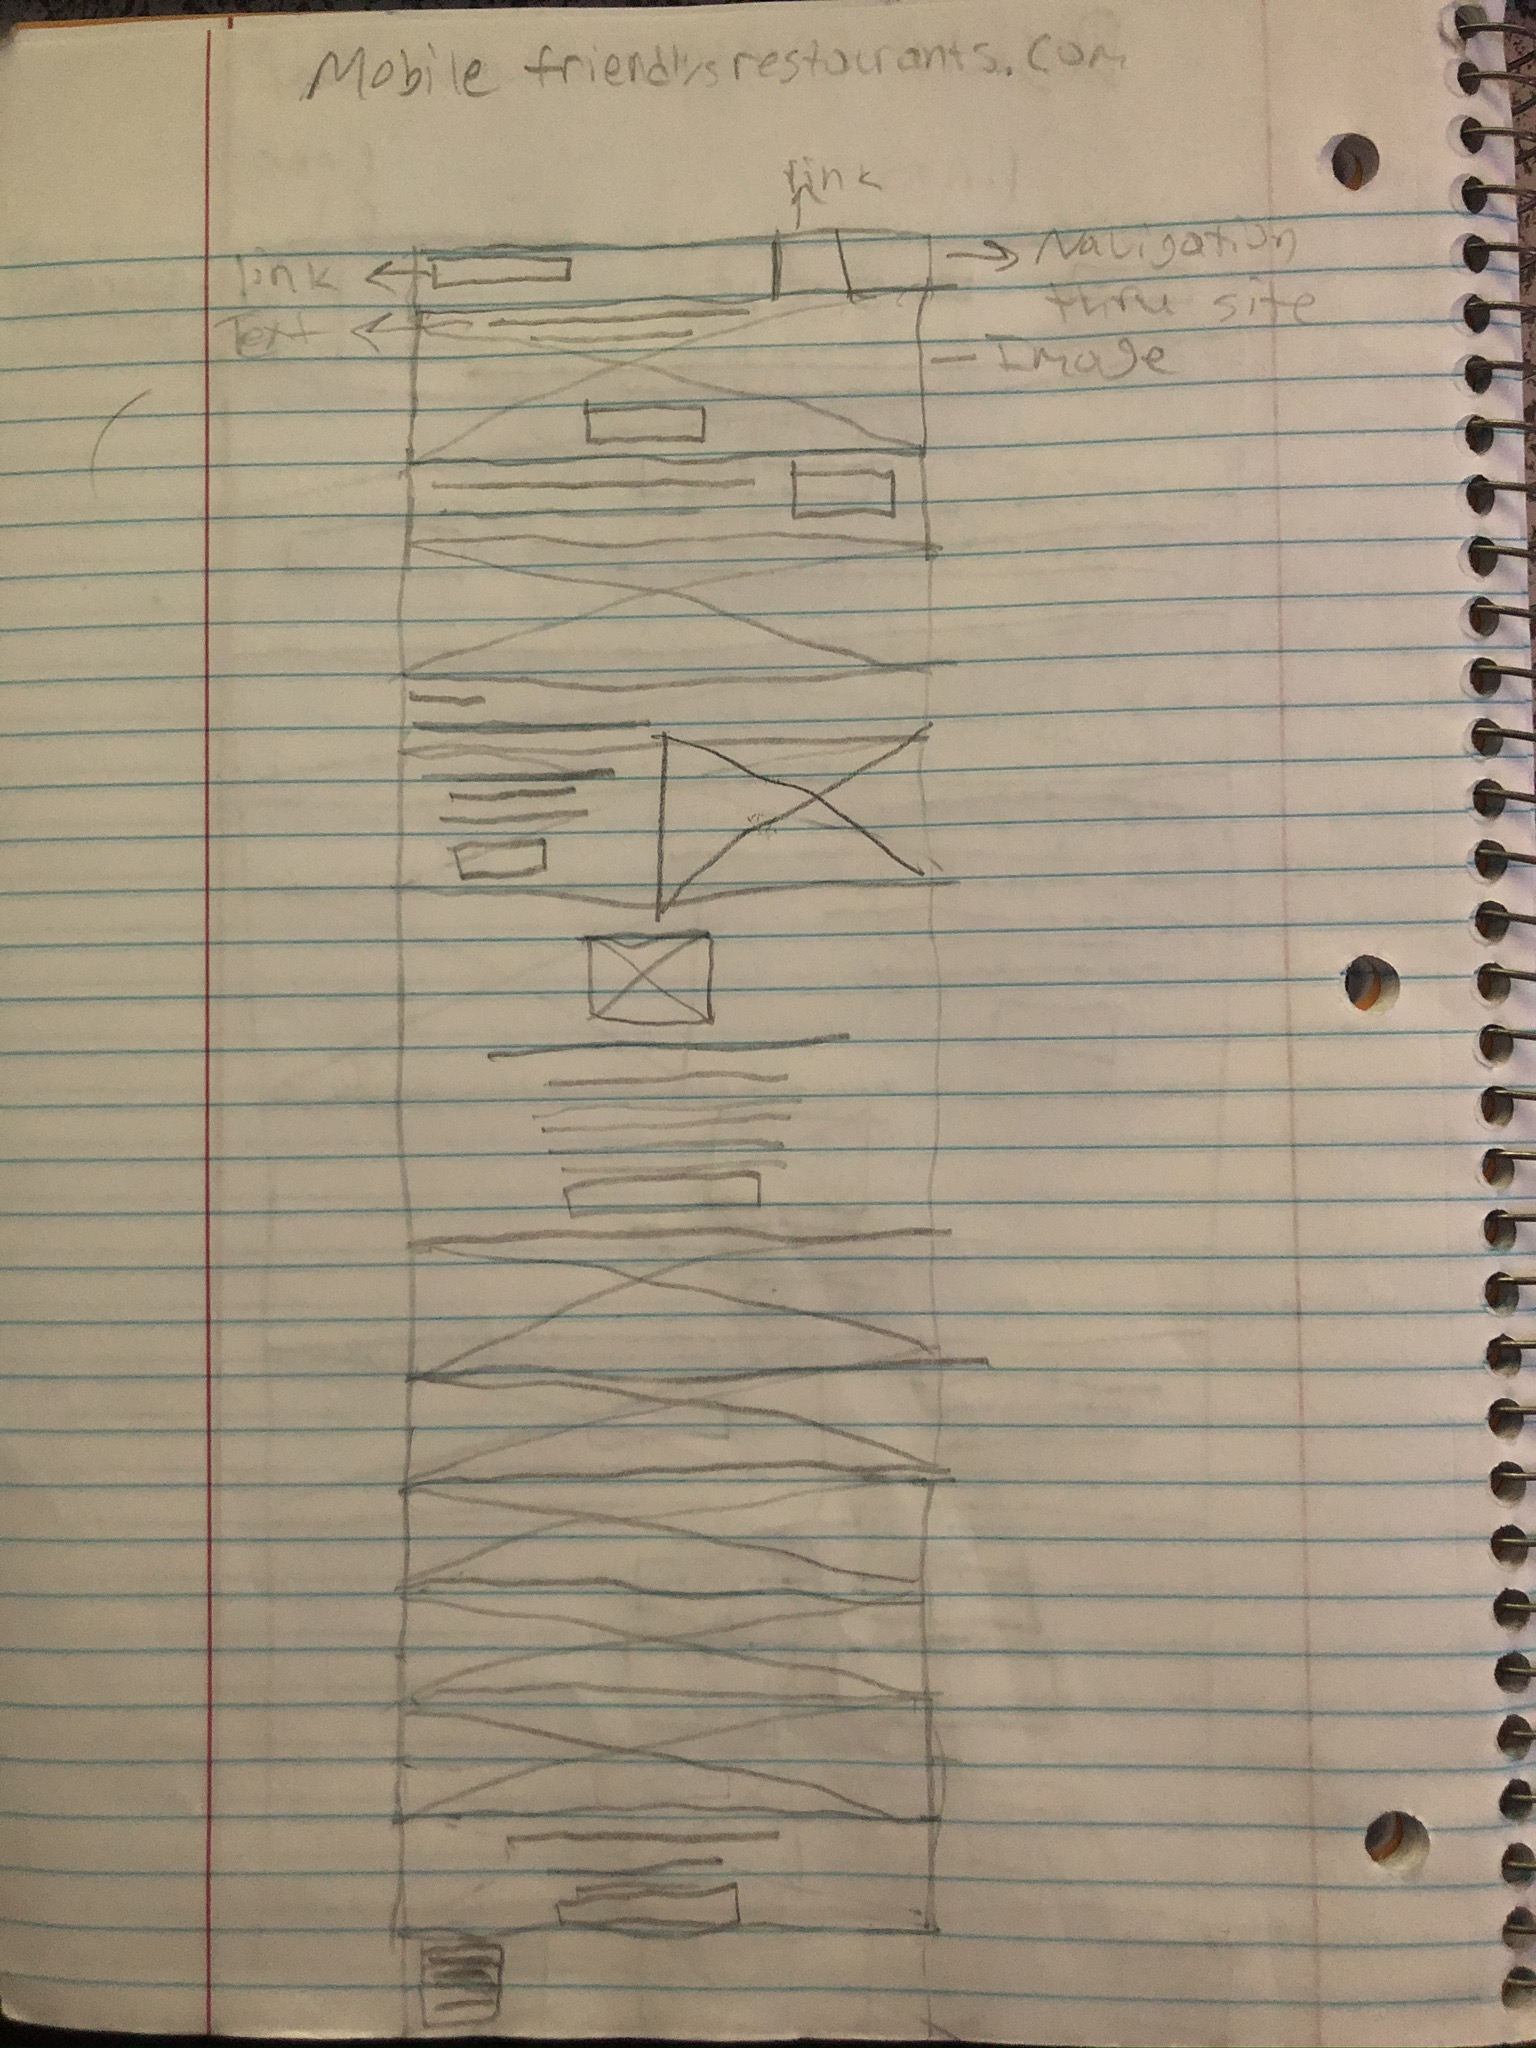 Mobile friendlysrestaurants.com
link
link
Navigation
thru site
Text
Image